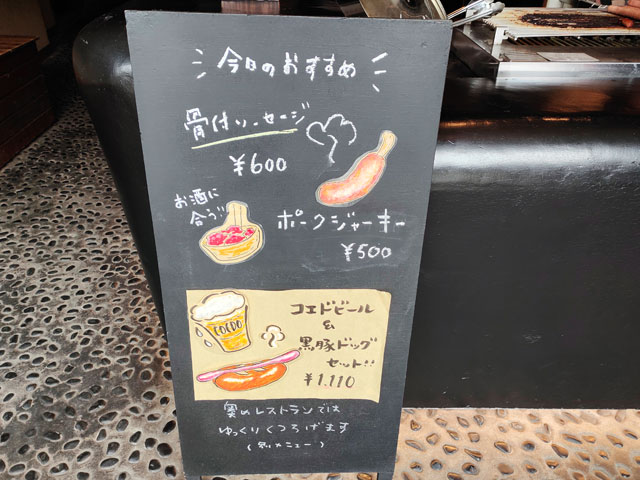 今日のおすすめ
骨付ソーセージ
¥600
お酒に
合う!!
ポークジャーキー
¥500
COEDO
コエドビール
&
黒豚ドッグ
セット!!
¥1,110
奥のレストランでは
ゆっくりくつろげます
(別メニュー)